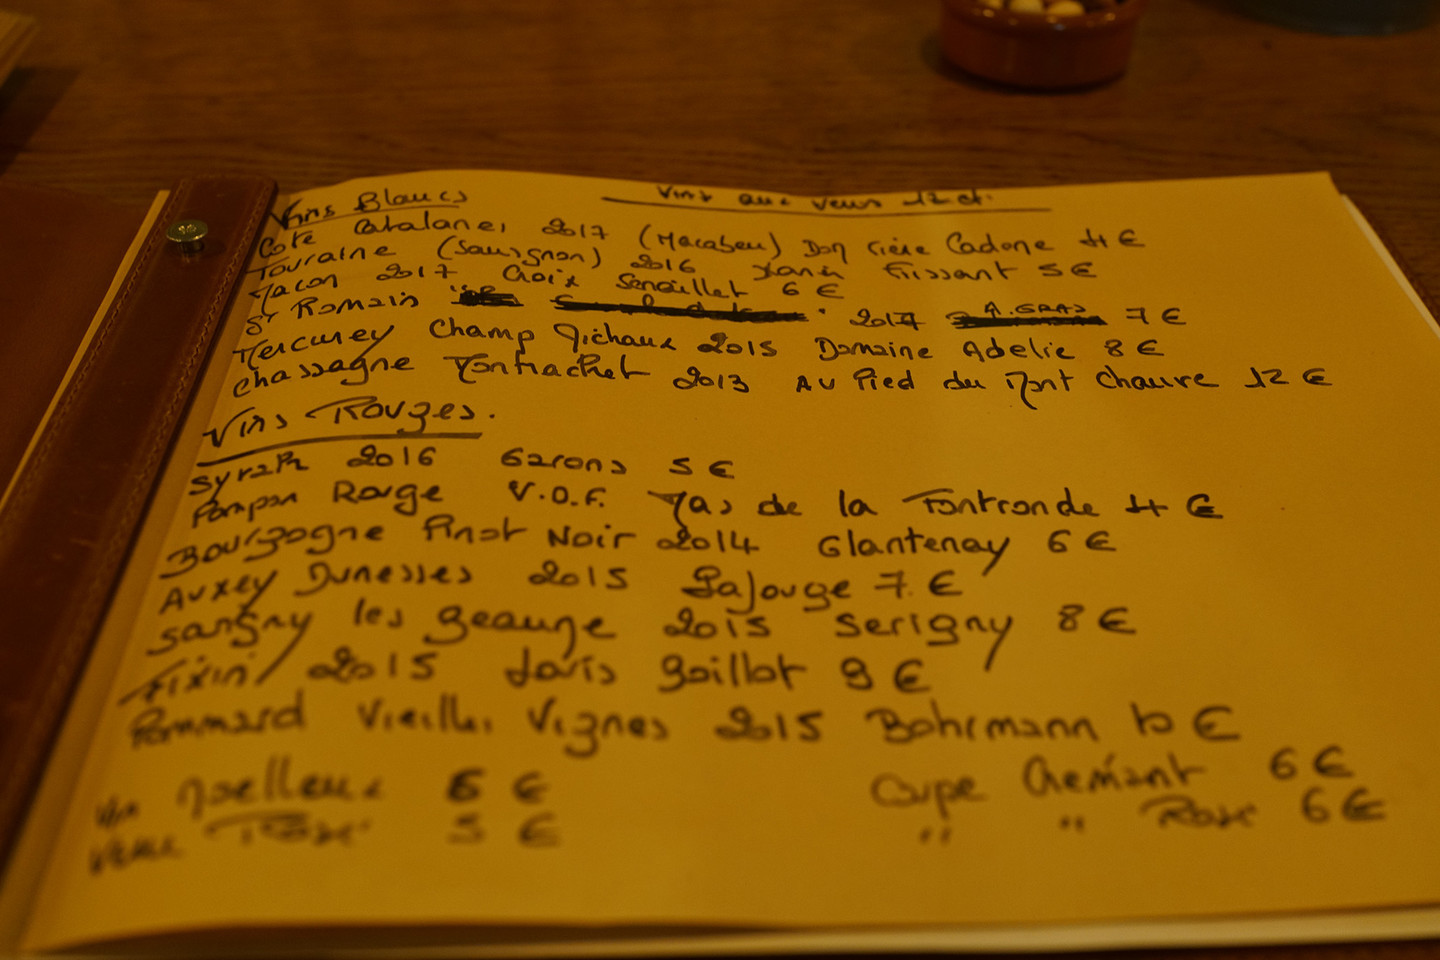 Vins Blancs
Vins aux verres 12 cl.
Côte Catalanes 2017 (Macabeu) Domaine Cadene 4 €
Touraine (Sauvignon) 2016 Xavier Frissant 5 €
Macon 2017 Croix Senaillet 6 €
St Romain 2017 A. GRAS 7 €
Mercurey Champ Michaux 2015 Domaine Adelie 8 €
Chassagne Montrachet 2013 Au Pied du Mont Chauve 12 €
Vins Rouges.
Syrah 2016 Garons 5 €
Pompon Rouge V.D.F. Mas de la Fontronde 4 €
Bourgogne Pinot Noir 2014 Glantenay 6 €
Auxey Duresses 2015 Lafouge 7 €
les 2015 Serigny 8 €
Fixin 2015 Louis Boillot 9 €
Pommard Vieilles Vignes 2015 Bohrmann 10 €
Vin Moelleux 6 €
Coupe Crémant 6 €
Verre Rosé 5 €
" " Rosé 6 €